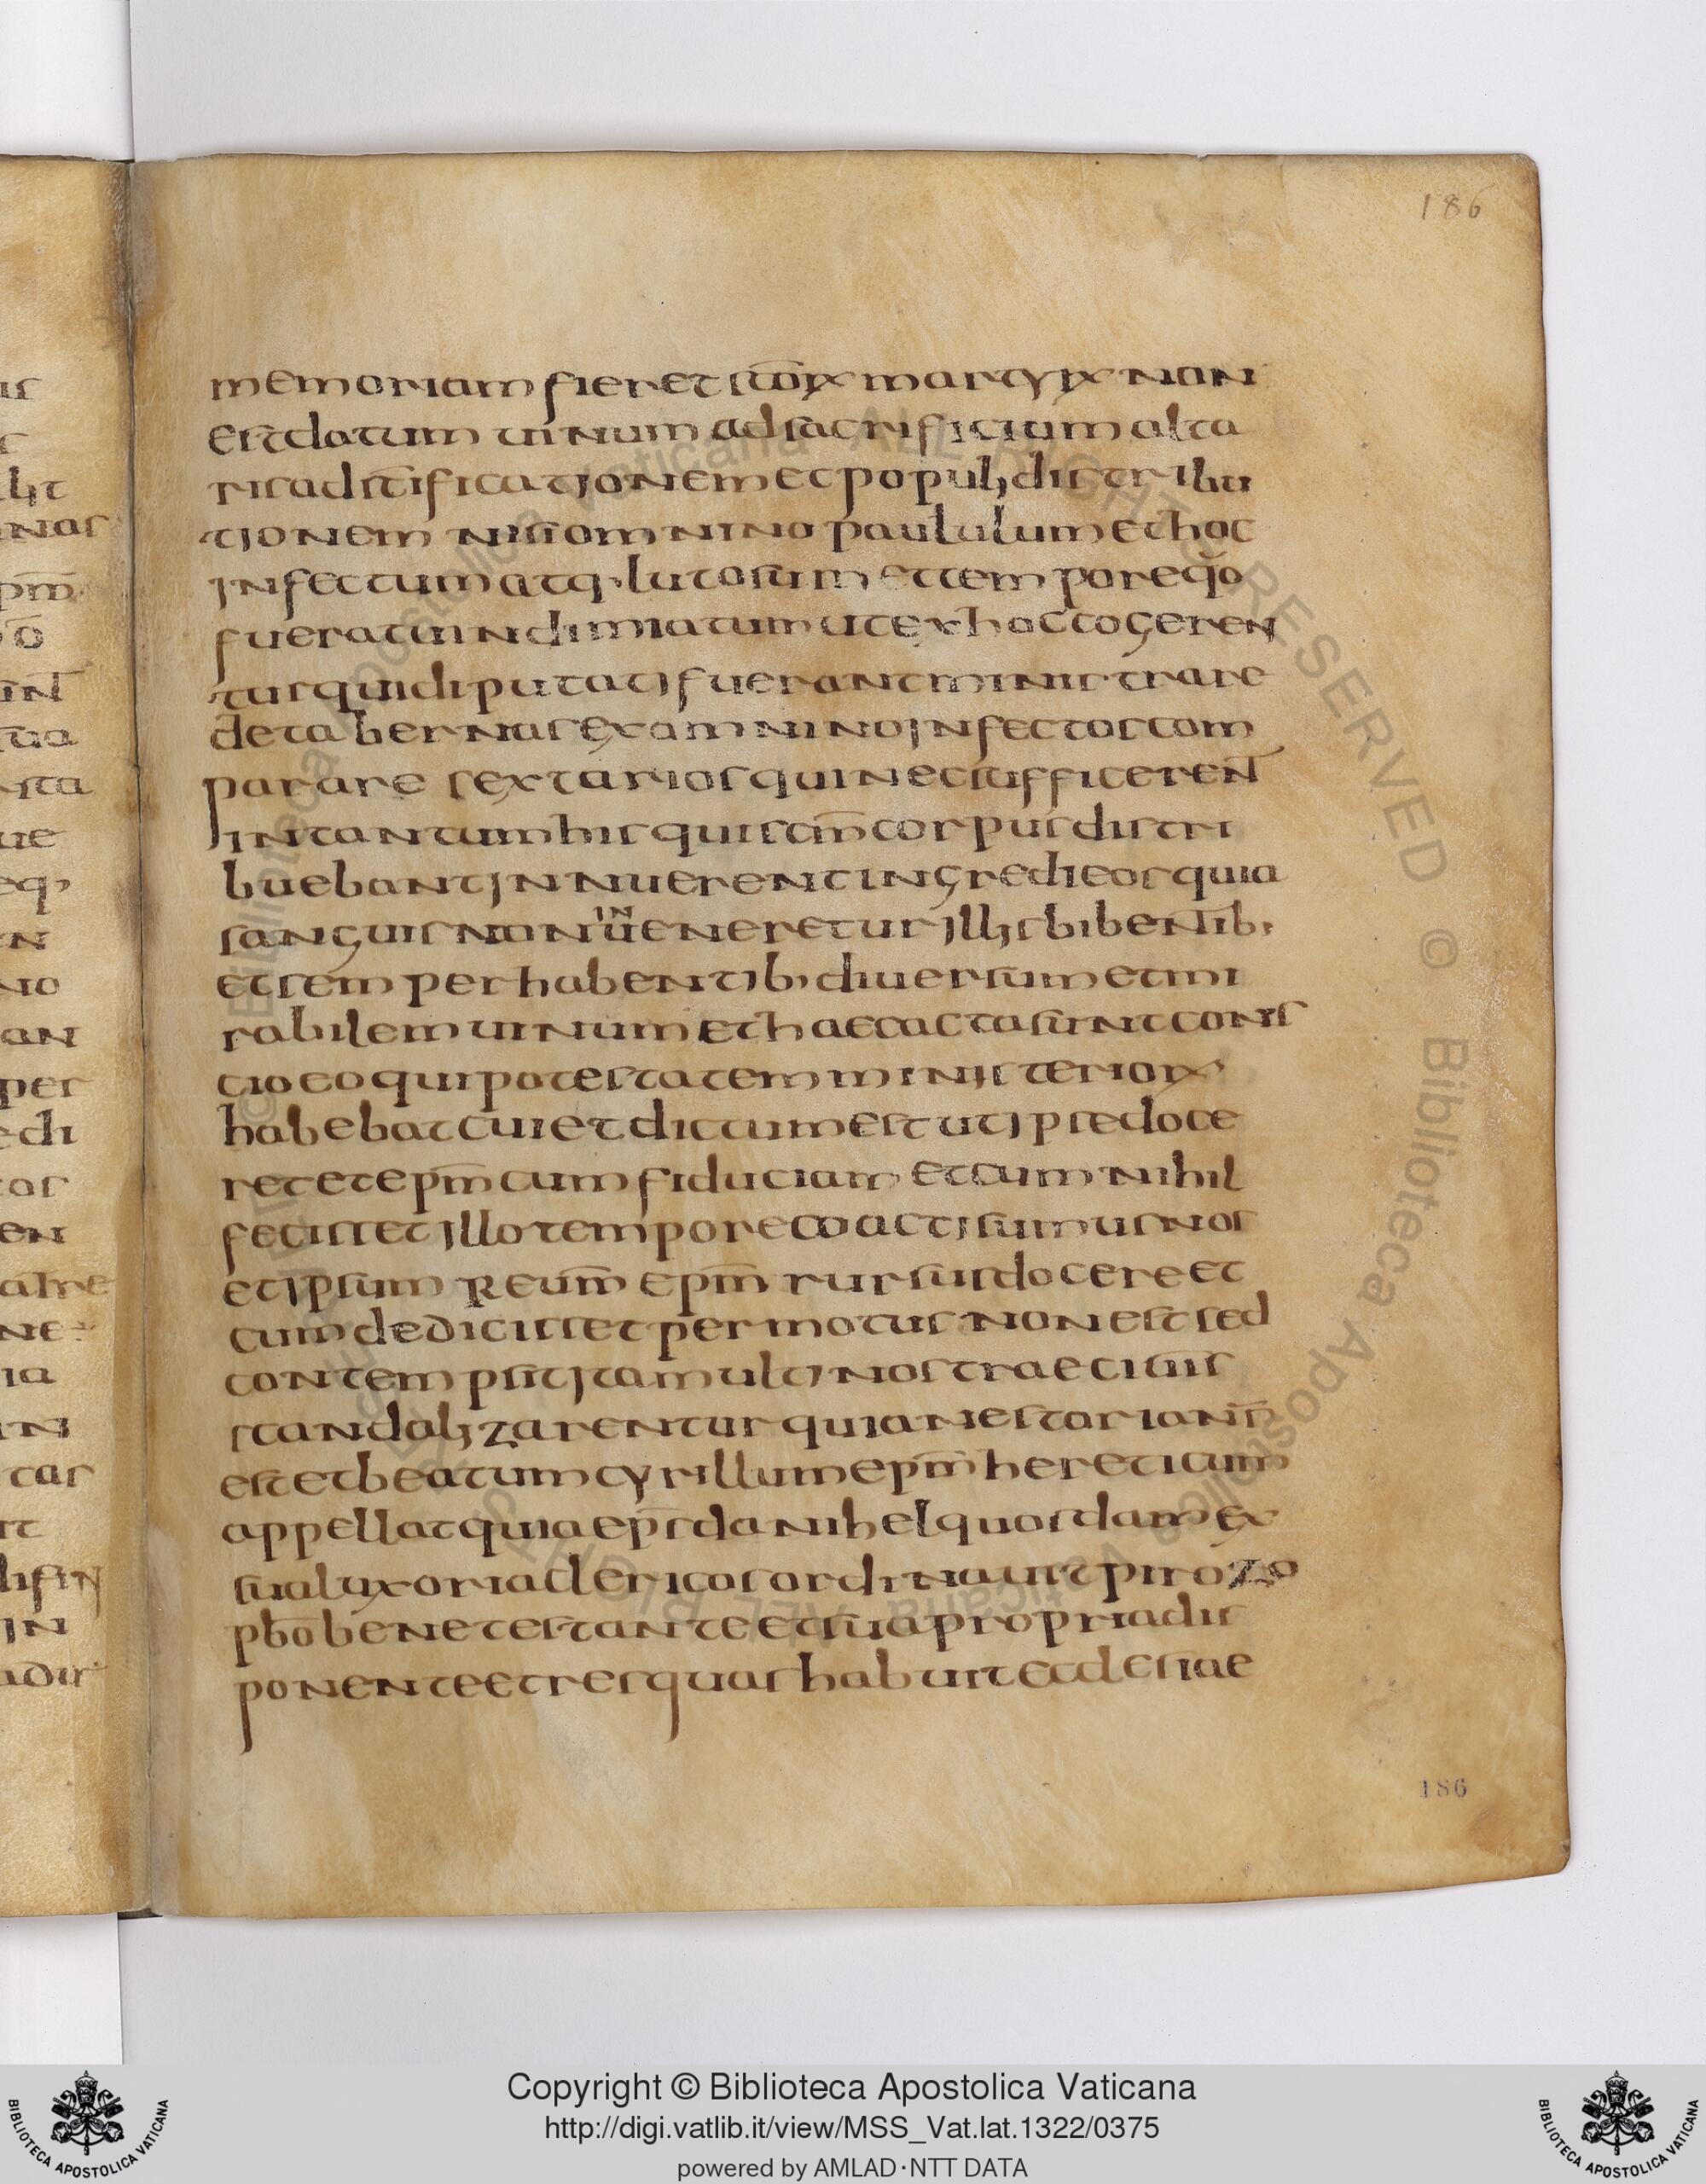 186
memoriam fieret sc̄oꝝ martyꝝ non
est datum uinum ad sacrificium alta
ris ad sc̄ificationem et populi distribu
tionem nisi omnino paululum et hoc
infectum atq· lutosum et tempore q̄o
fuerat uindimiatum ut ex hoc cogeren
tur qui diputati fuerant ministrare
de tabernas examnino infectos com
parare sextarios qui nec sufficeren̄
in tantum his qui sc̄m corpus distri
buebant innuerent ingredi eos quia
sanguis non inueneretur illis bibentib·
et semper habentib· diuersum et mi
rabilem uinum et haec acta sunt cons
cio eo qui potestatem ministerioꝝ
habebat cui et dictum est uti p se doce
ret et ep̄m cum fiduciam et cum nihil
fecisset illo tempore coacti sumus nos
et ipsum reum̄ ep̄m rursus docere et
cum dedicisset permotus non est sed
contempsit ita multi nostrae ciuis
scandalizarentur quia nestorianus
est et beatum cyrillum ep̄m hereticum
appellat quia ep̄s danihel quosdam ex
sua luxoria clericos ordinauit pirozo
pb̄o bene testante et sua propria dis
ponente et res quas habuit ecclesiae
186
Copyright © Biblioteca Apostolica Vaticana
http://digi.vatlib.it/view/MSS_Vat.lat.1322/0375
powered by AMLAD·NTT DATA
BIBLIOTECA APOSTOLICA VATICANA
BIBLIOTECA APOSTOLICA VATICANA